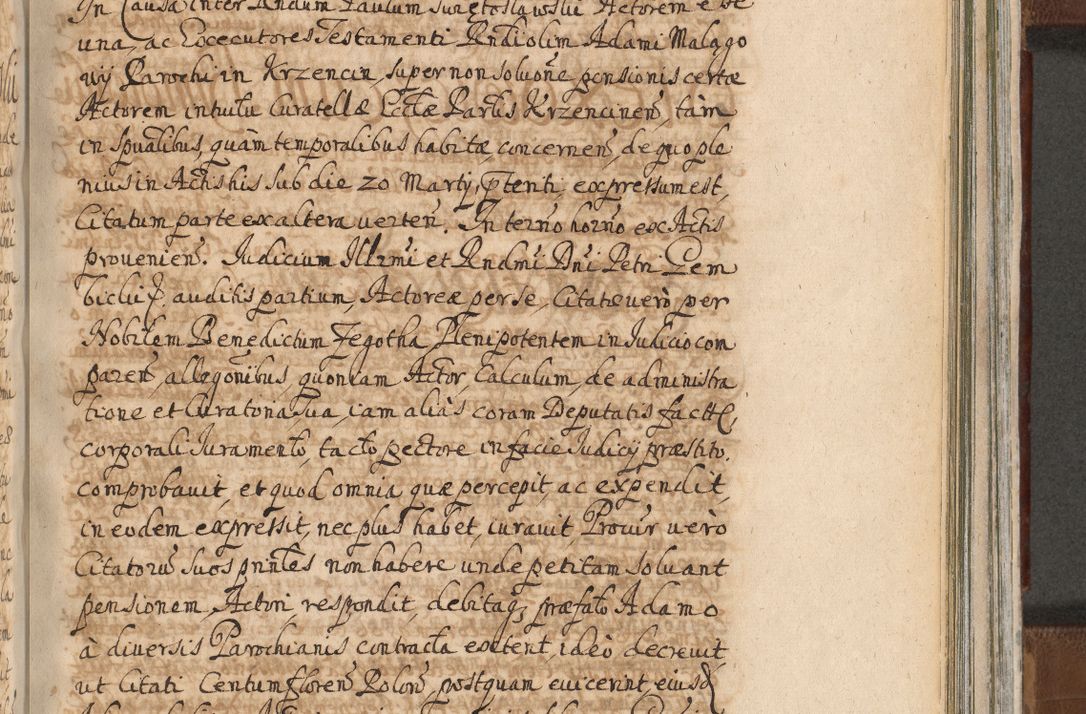 In Causa inter Rndum Paulum Suretoslawski Actorem e
una, ac Execcutores Testamenti Rndi olim Adami Malago
wij Parochi in Krzencin, super non soluone pensionis certæ
Actorem intuitu Curatellæ Ecclæ Parlis Krzencinen, tàm
in spualibus, quàm temporalibus habitæ, concernen, de quo ple
nius in Actis his sub die 20 Martij, ptenti, expressum est,
Citatum parte ex altera uerten. In terno horno ex Actis
prouenien. Iudicium Illrmi et Rndmi Dni Petri Gem
bicki, auditis partium, Actoreæ per se, Citatæ uero per
Nobilem Benedictum Zegotha Plenipotentem in Iudicio com
paren, allegonibus, quoniam Actor, Calculum, de administra
tione et Curatoria sua, iam aliàs coram Deputatis fact
corporali Iuramento, tacto pectore in facie Iudicij præstito,
comprobauit, et quod omnia quæ percepit, ac expendit,
in eodem expressit, nec plus habet, iurauit Procur uerò
Citatoru suos pnntes non habere unde petitam soluant
pensionem Actori respondit, debitaq præfato Adamo
à diuersis Parochianis contracta exstent, ideò decreuit
ut Citati Centum floren Polon, postquam euicerint, eiusd